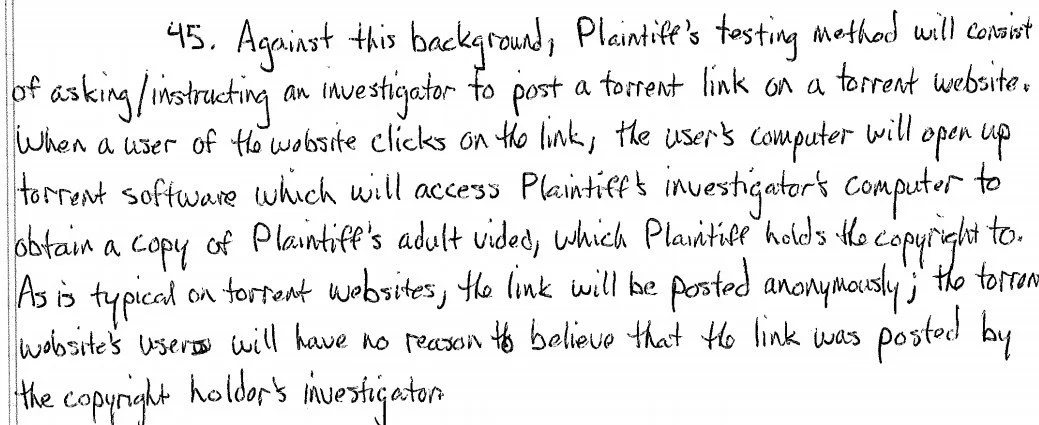 45. Against this background, Plaintiff's testing method will consist
of asking/instructing an investigator to post a torrent link on a torrent website.
When a user of the website clicks on the link, the user's computer will open up
torrent software which will access Plaintiff's investigator's computer to
obtain a copy of Plaintiff's adult video, which Plaintiff holds the copyright to.
As is typical on torrent websites, the link will be posted anonymously; the torren
website's users will have no reason to believe that the link was posted by
the copyright holder's investigator.